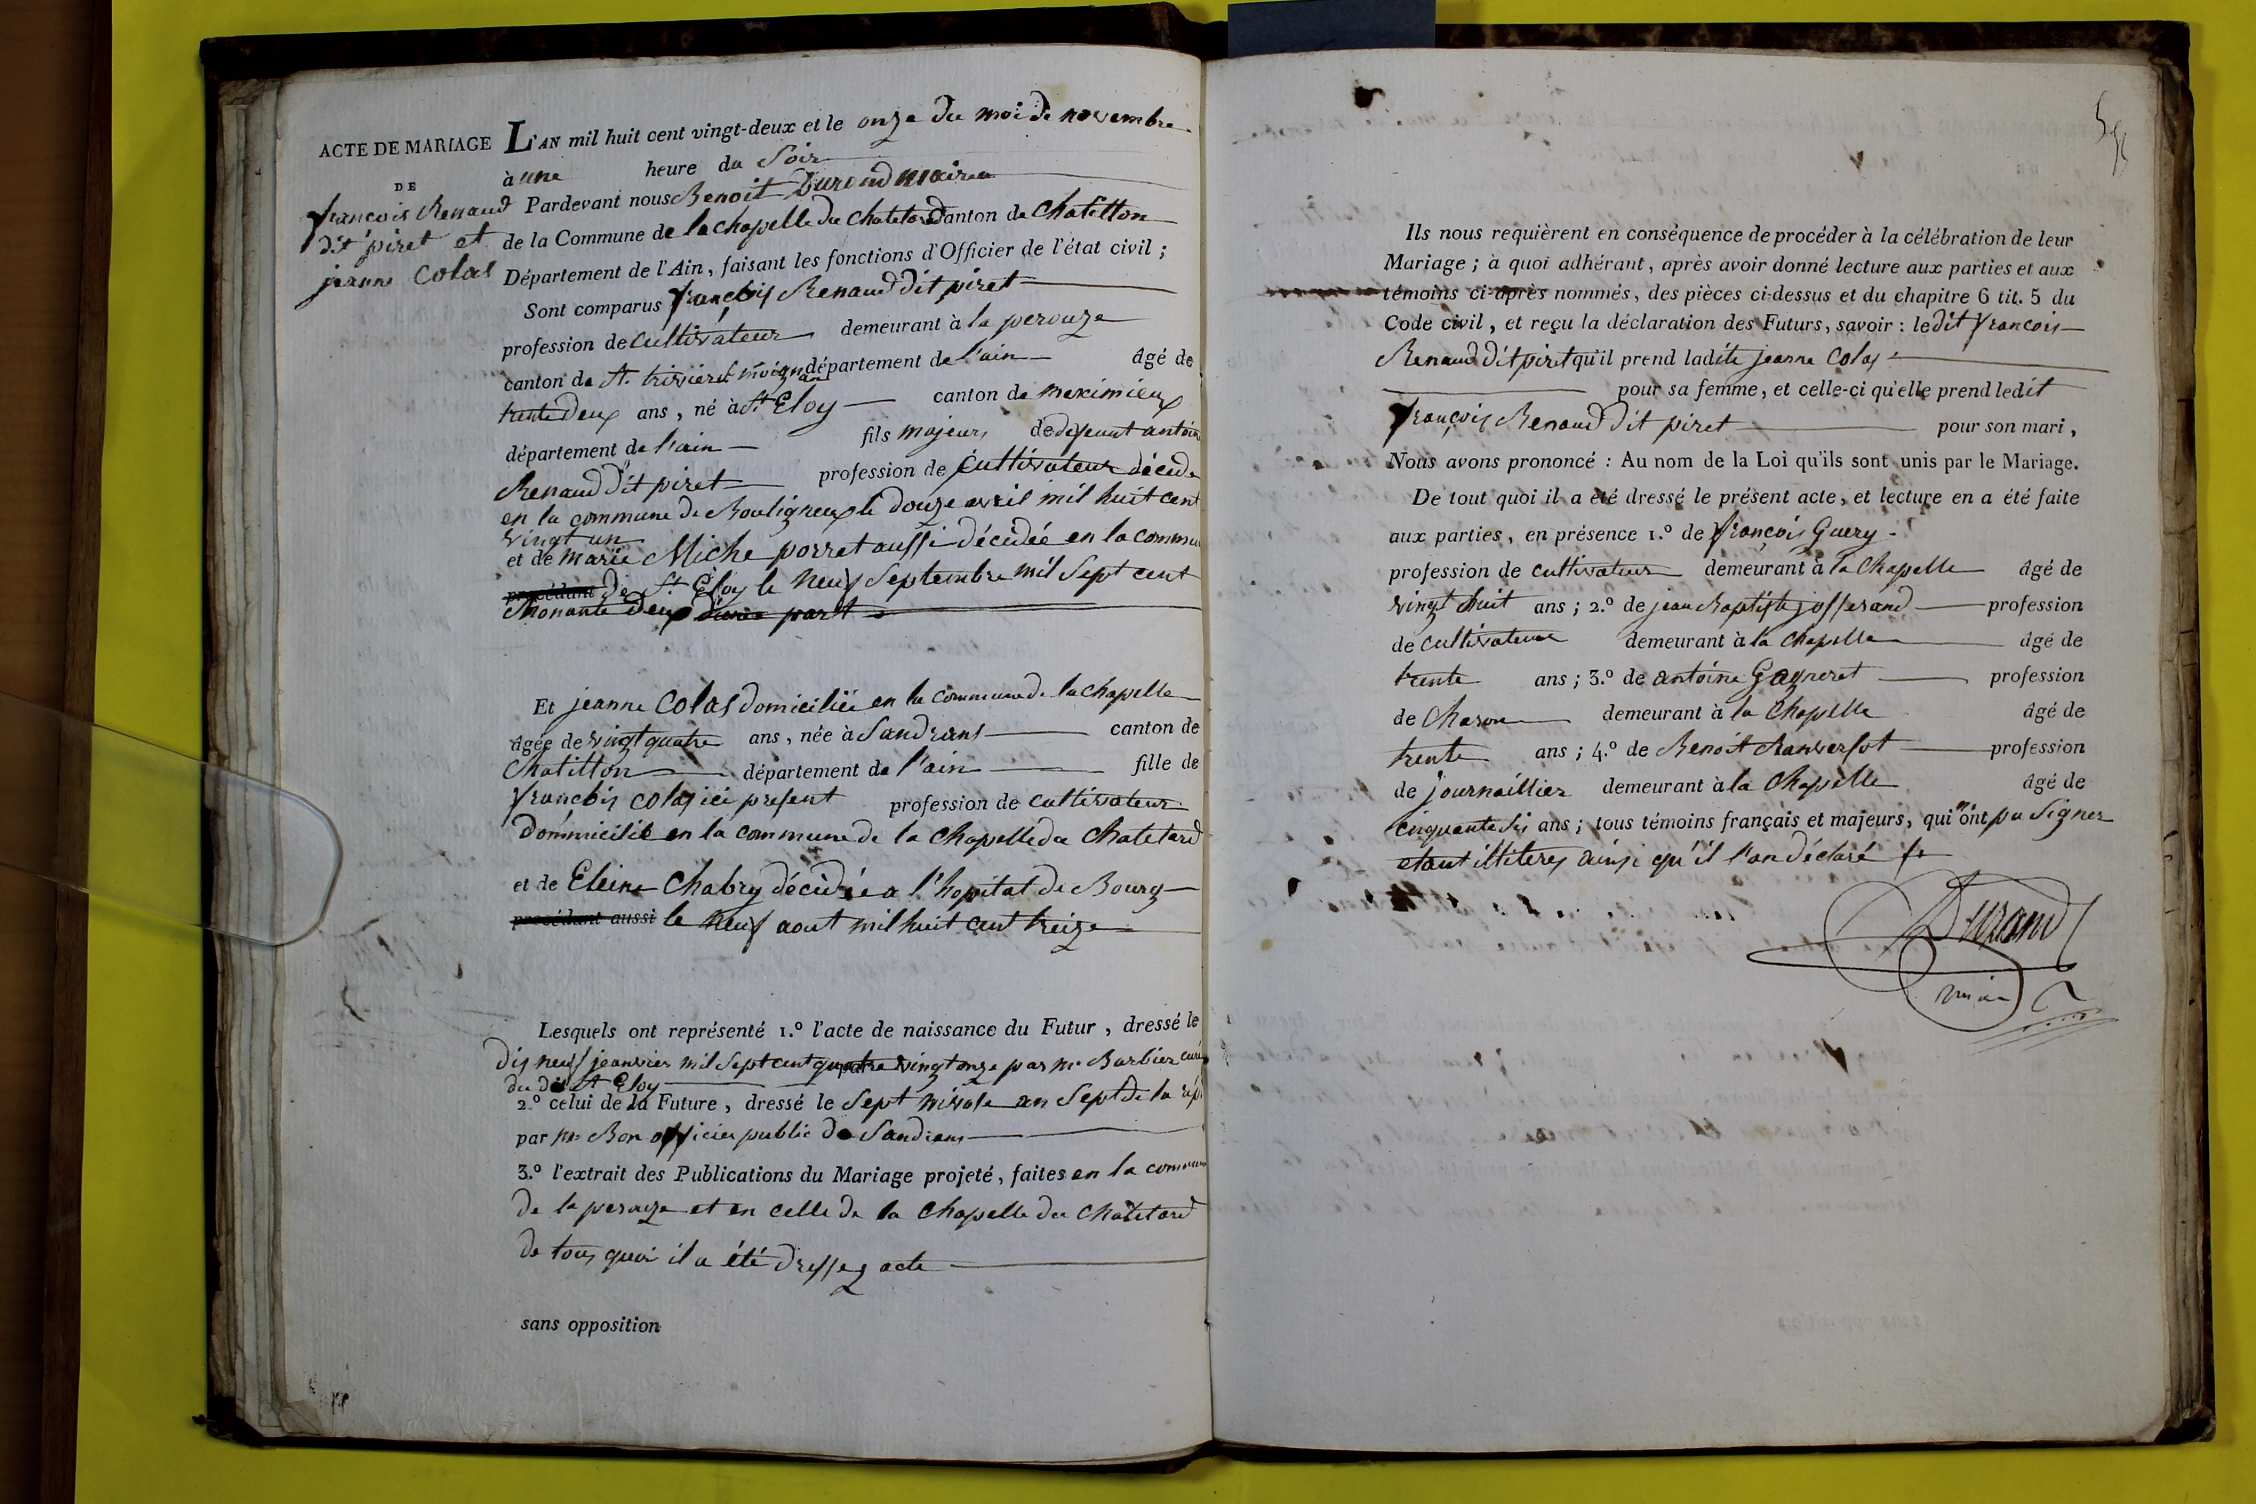 ACTE DE MARIAGE
DE
françois Renaud
dit piret et
jeanne Colas
L'AN mil huit cent vingt-deux et le onze du moi de novembre
à une heure du Soir
Pardevant nous Benoit Durand maire
de la Commune de la chapelle du chatelard canton de Chatillon
Département de l'Ain, faisant les fonctions d'Officier de l'état civil ;
Sont comparus françois Renaud dit piret
profession de cultivateur demeurant à la perouze
canton de St. trivier département de l'ain âgé de
trente deux ans, né à St Eloy canton de meximieux
département de l'ain fils majeur de defeunt antoine
Renaud dit piret profession de Cultivateur décédé
en la commune de Bouligneux le douze avril mil huit cent
vingt un
et de marie Miche porret aussi décédée en la commune
procédant de St. Eloy le neuf Septembre mil Sept cent
part
Et jeanne Colas domiciliée en la commune de la chapelle
âgée de vingt quatre ans, née à Sandrans canton de
Chatillon département de l'ain fille de
françois colas ici present profession de cultivateur
dommicilié en la commune de la Chapelle du Chatelard
et de Eleine Chabry décédée a l'hopital de Bourg
procédant aussi le neuf aout mil huit cent treize
Lesquels ont représenté 1.º l'acte de naissance du Futur, dressé le
dix neuf jeanvier mil Sept cent quatre vingt onze par mr Barbier curé
du dit St Eloy
2.º celui de la Future, dressé le Sept nivose an Sept de la rép
par mr Bon officier public de Sandrans
3.º l'extrait des Publications du Mariage projeté, faites en la commune
de la perouze et en celle de la Chapelle du Chatelard
de tous quoi il a été dressez acte
sans opposition
Ils nous requièrent en conséquence de procéder à la célébration de leur
Mariage ; à quoi adhérant, après avoir donné lecture aux parties et aux
témoins ci-après nommés, des pièces ci-dessus et du chapitre 6 tit. 5 du
Code civil, et reçu la déclaration des Futurs, savoir : ledit françois
Renaud dit piret qu'il prend ladite jeanne Colas
pour sa femme, et celle-ci qu'elle prend ledit
françois Renaud dit piret pour son mari,
Nous avons prononcé : Au nom de la Loi qu'ils sont unis par le Mariage.
De tout quoi il a été dressé le présent acte, et lecture en a été faite
aux parties, en présence 1.º de françois Guery
profession de cultivateur demeurant à la Chapelle âgé de
vingt huit ans ; 2.º de jean Baptiste josserand profession
de cultivateur demeurant à la Chapelle âgé de
trente ans ; 3.º de antoine Gagneret profession
de Charon demeurant à la Chapelle âgé de
trente ans ; 4.º de Benoit chanversot profession
de journaillier demeurant à la Chapelle âgé de
cinquante six ans ; tous témoins français et majeurs, qui n'ont pu Signer
etant illiteres ainsi qu'il l'on déclaré
Durand
maire